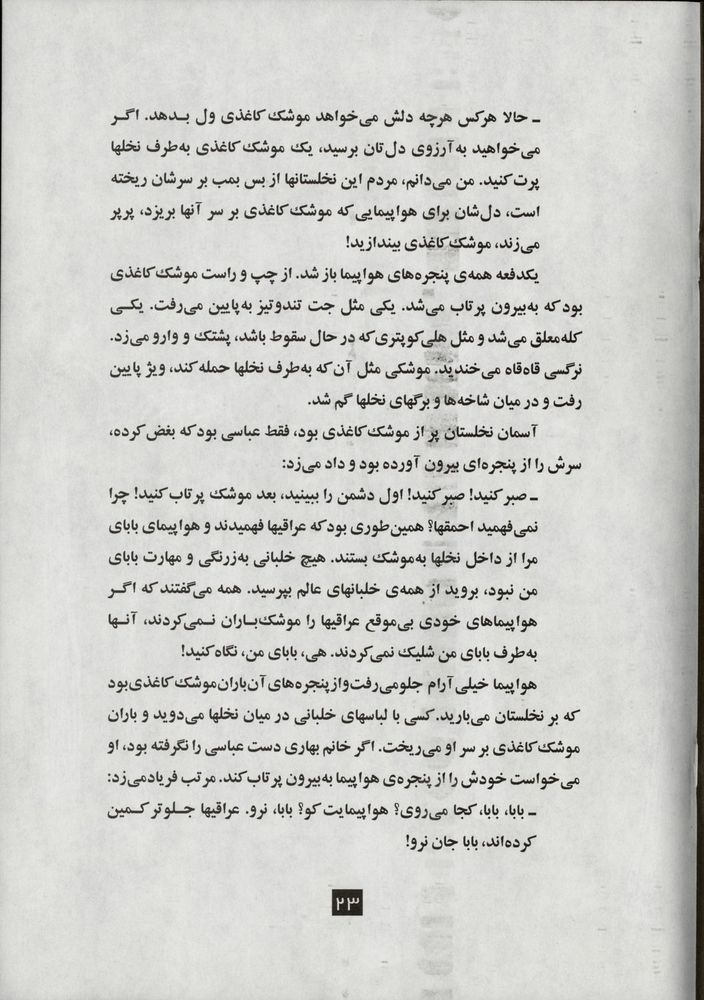 ـ حالا هرکس هرچه دلش می‌خواهد موشک کاغذی ول بـدهد. اگـر
می‌خواهید به‌آرزوی دل‌تان برسید، یک موشک کاغذی به‌طرف نخلها
پرت کنید. من می‌دانم، مردم این نخلستانها از بس بمب بر سرشان ریخته
است، دل‌شان برای هواپیمایی که موشک کاغذی بر سر آنها بریزد، پرپر
می‌زند، موشک کاغذی بیندازید!
یکدفعه همه‌ی پنجره‌های هواپیما باز شد. از چپ و راست موشک کاغذی
بود که به‌بیرون پرتاب می‌شد. یکی مثل جت تندوتیز به‌پایین می‌رفت. یکـی
کله‌معلق می‌شد و مثل هلی‌کوپتری که در حال سقوط باشد، پشتک و وارو می‌زد.
نرگسی قاه‌قاه می‌خندید. موشکی مثل آن‌که به‌طرف نخلها حمله کند، ویژ پایین
رفت و در میان شاخه‌ها و برگهای نخلها گم شد.
آسمان نخلستان پر از موشک کاغذی بود، فقط عباسی بود که بغض کرده،
سرش را از پنجره‌ای بیرون آورده بود و داد می‌زد:
ـ صبر کنید! صبر کنید! اول دشمن را ببینید، بعد موشک پرتاب کنید! چرا
نمی‌فهمید احمقها؟ همین‌طوری بود که عراقیها فهمیدند و هواپیمای بابای
مرا از داخل نخلها به‌موشک بستند. هیچ خلبانی به‌زرنگی و مهارت بابای
من نبود، بروید از همه‌ی خلبانهای عالم بپرسید. همه می‌گفتند که اگـر
هواپیماهای خودی بی‌موقع عراقیها را موشک‌بـاران نـمی‌کردند، آنـها
به‌طرف بابای من شلیک نمی‌کردند. هی، بابای من، نگاه کنید!
هواپیما خیلی آرام جلو می‌رفت و از پنجره‌های آن باران موشک کاغذی بود
که بر نخلستان می‌بارید. کسی با لباسهای خلبانی در میان نخلها می‌دوید و باران
موشک کاغذی بر سر او می‌ریخت. اگر خانم بهاری دست عباسی را نگرفته بود، او
می‌خواست خودش را از پنجره‌ی هواپیما به‌بیرون پرتاب کند. مرتب فریاد می‌زد:
ـ بابا، بابا، کجا می‌روی؟ هواپیمایت کو؟ بابا، نرو. عراقیها جـلوتر کـمین
کرده‌اند، بابا جان نرو!
۲۳